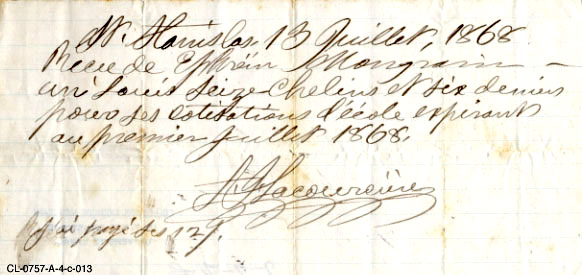 St. Stanislas 13 Juillet, 1868.
Recu de Ephrein Mongrain —
un Louis seize chelins et six deniers
pour ses cotisations d'école expirant
au premier Juillet 1868.
Lacourcière
J'ai payé ses
CL-0757-A-4-c-013